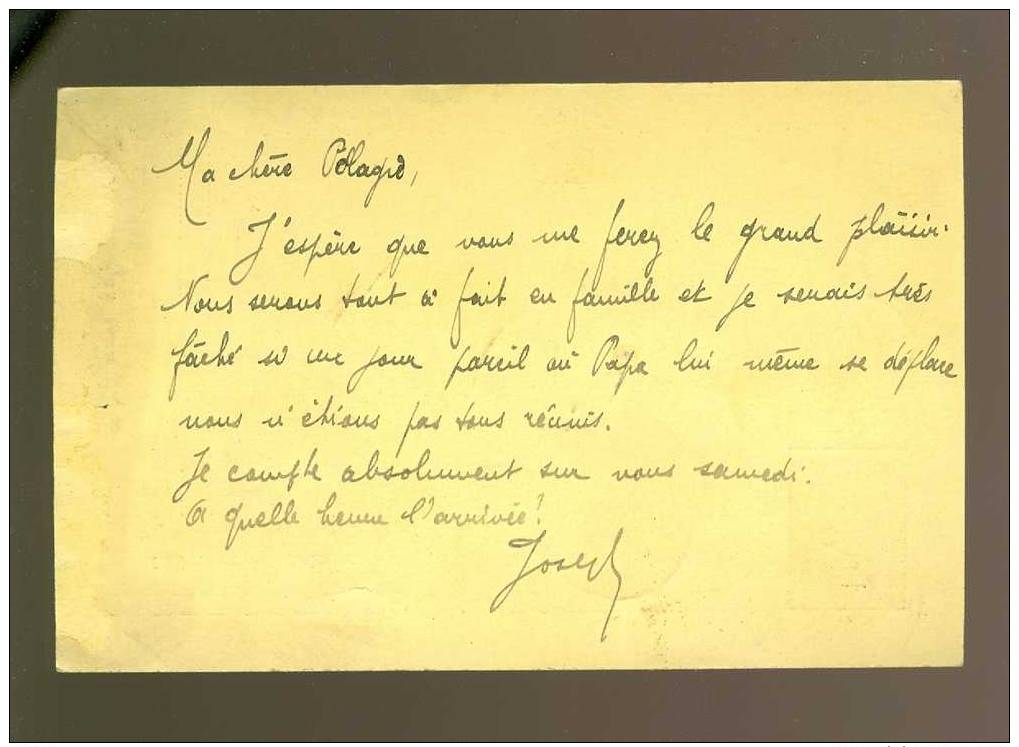 Ma chère
J'espère que vous me ferez le grand plaisir.
Nous serons tout à fait en famille et je serais très
fâché si un jour pareil où Papa lui même se déplace
nous n'étions pas tous réunis.
Je compte absolument sur vous samedi.
A quelle heure l'arrivée?
Joseph